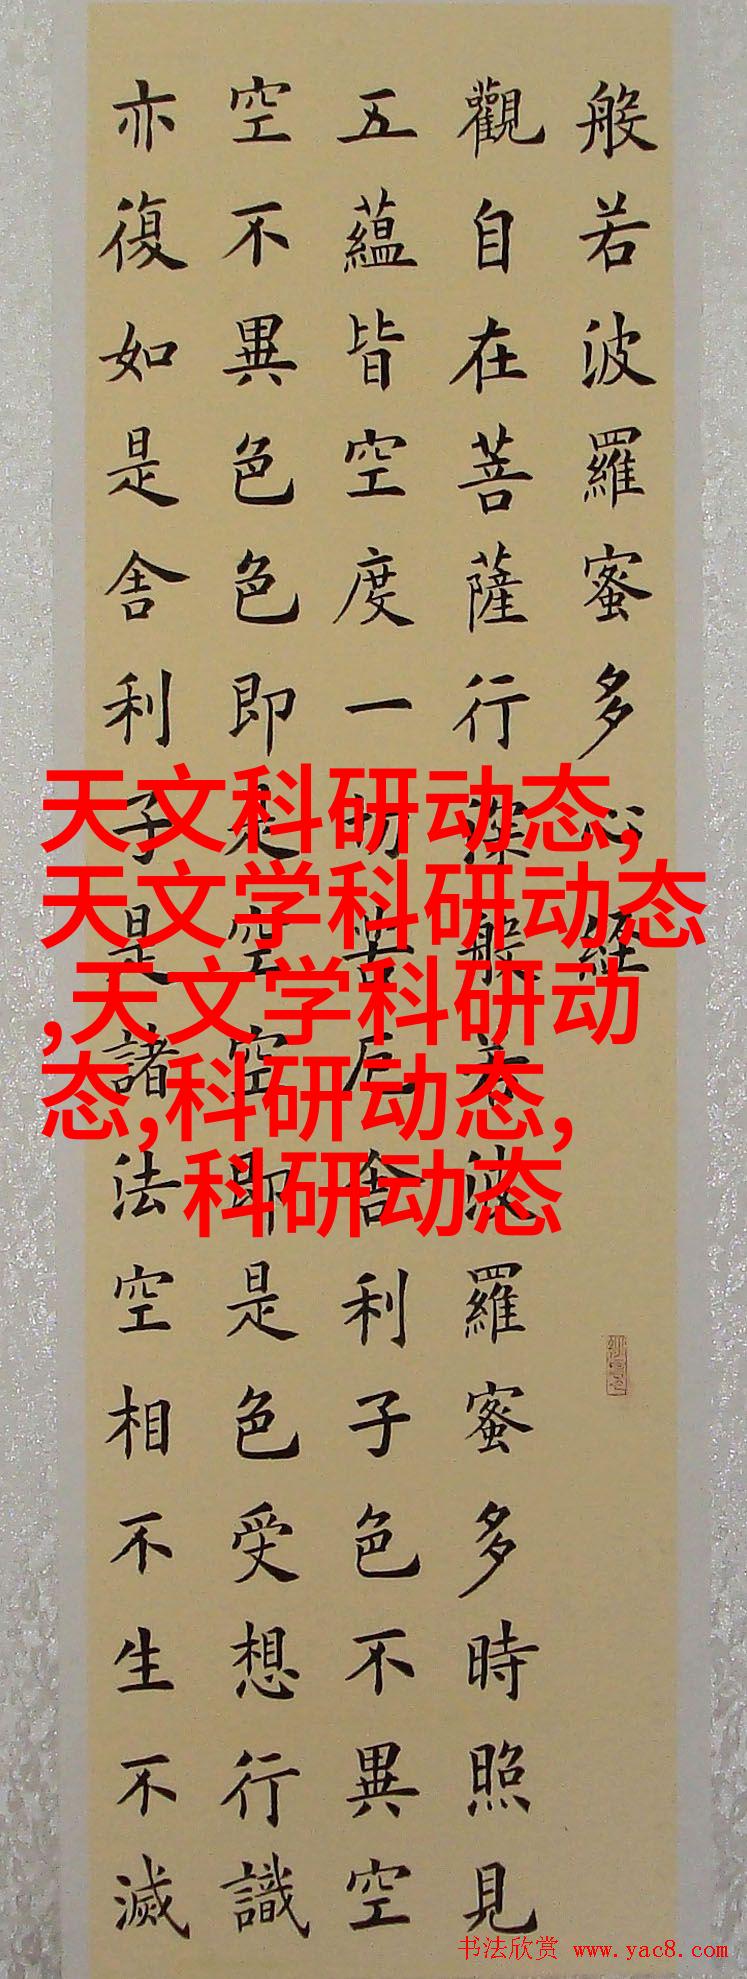 般若波羅蜜多心経
觀自在菩薩行深般若波羅蜜多時照見
五蘊皆空度一切苦厄舍利子色不異空
空不異色色即是空空即是色受想行識
亦復如是舍利子是諸法空相不生不滅
天文科研动态,
天文学科研动态
,天文学科研动
态,科研动态,
科研动态
书法欣赏 www.yac8.com